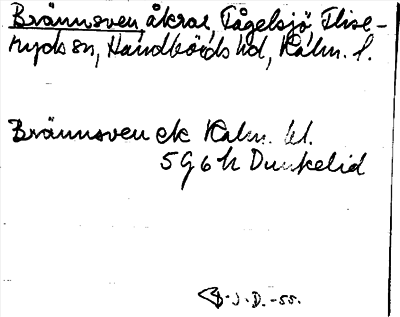 Brännsven, åkrar, Fågelsjö, Flise-
ryds sn, Handbörds hd, Kalm. l.
Brännsven ek Kalm. bl.
5 G 6 h Dunkelid
-J.D.-55.